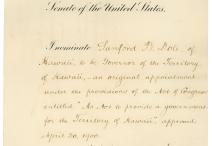 Senate of the United States.
I nominate Sanford B. Dole, of
Hawaii, to be Governor of the Territory
of Hawaii, an original appointment
under the provisions of the Act of Congress
entitled "An Act to provide a government
for the Territory of Hawaii", approved
April 30, 1900.